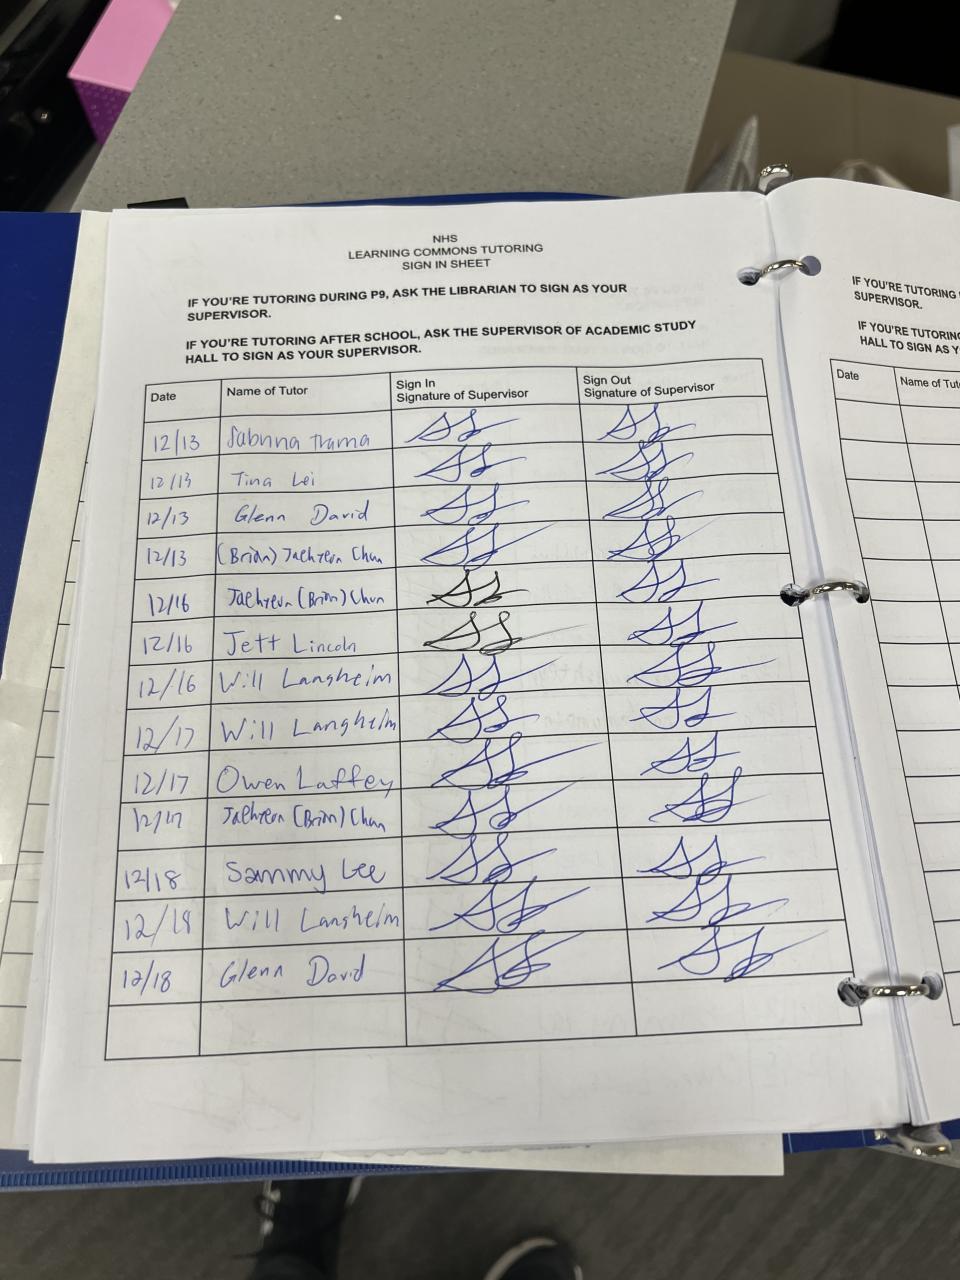 NHS
LEARNING COMMONS TUTORING
SIGN IN SHEET
IF YOU'RE TUTORING DURING P9, ASK THE LIBRARIAN TO SIGN AS YOUR
SUPERVISOR.
IF YOU'RE TUTORING AFTER SCHOOL, ASK THE SUPERVISOR OF ACADEMIC STUDY
HALL TO SIGN AS YOUR SUPERVISOR.
Date Name of Tutor Sign In Signature of Supervisor Sign Out Signature of Supervisor
12/13 Sabrina
12/13 Tina Lei
12/13 Glenn David
12/13 (Brian) Jaehyeon Chun
12/16 Jaehyeon (Brian) Chun
12/16 Jett Lincoln
12/16 Will Langheim
12/17 Will Langheim
12/17 Owen Laffey
12/17 Jaehyeon (Brian) Chun
12/18 Sammy Lee
12/18 Will Langheim
12/18 Glenn David
IF YOU'RE TUTORING
SUPERVISOR.
IF YOU'RE TUTORING
HALL TO SIGN AS
Date Name of